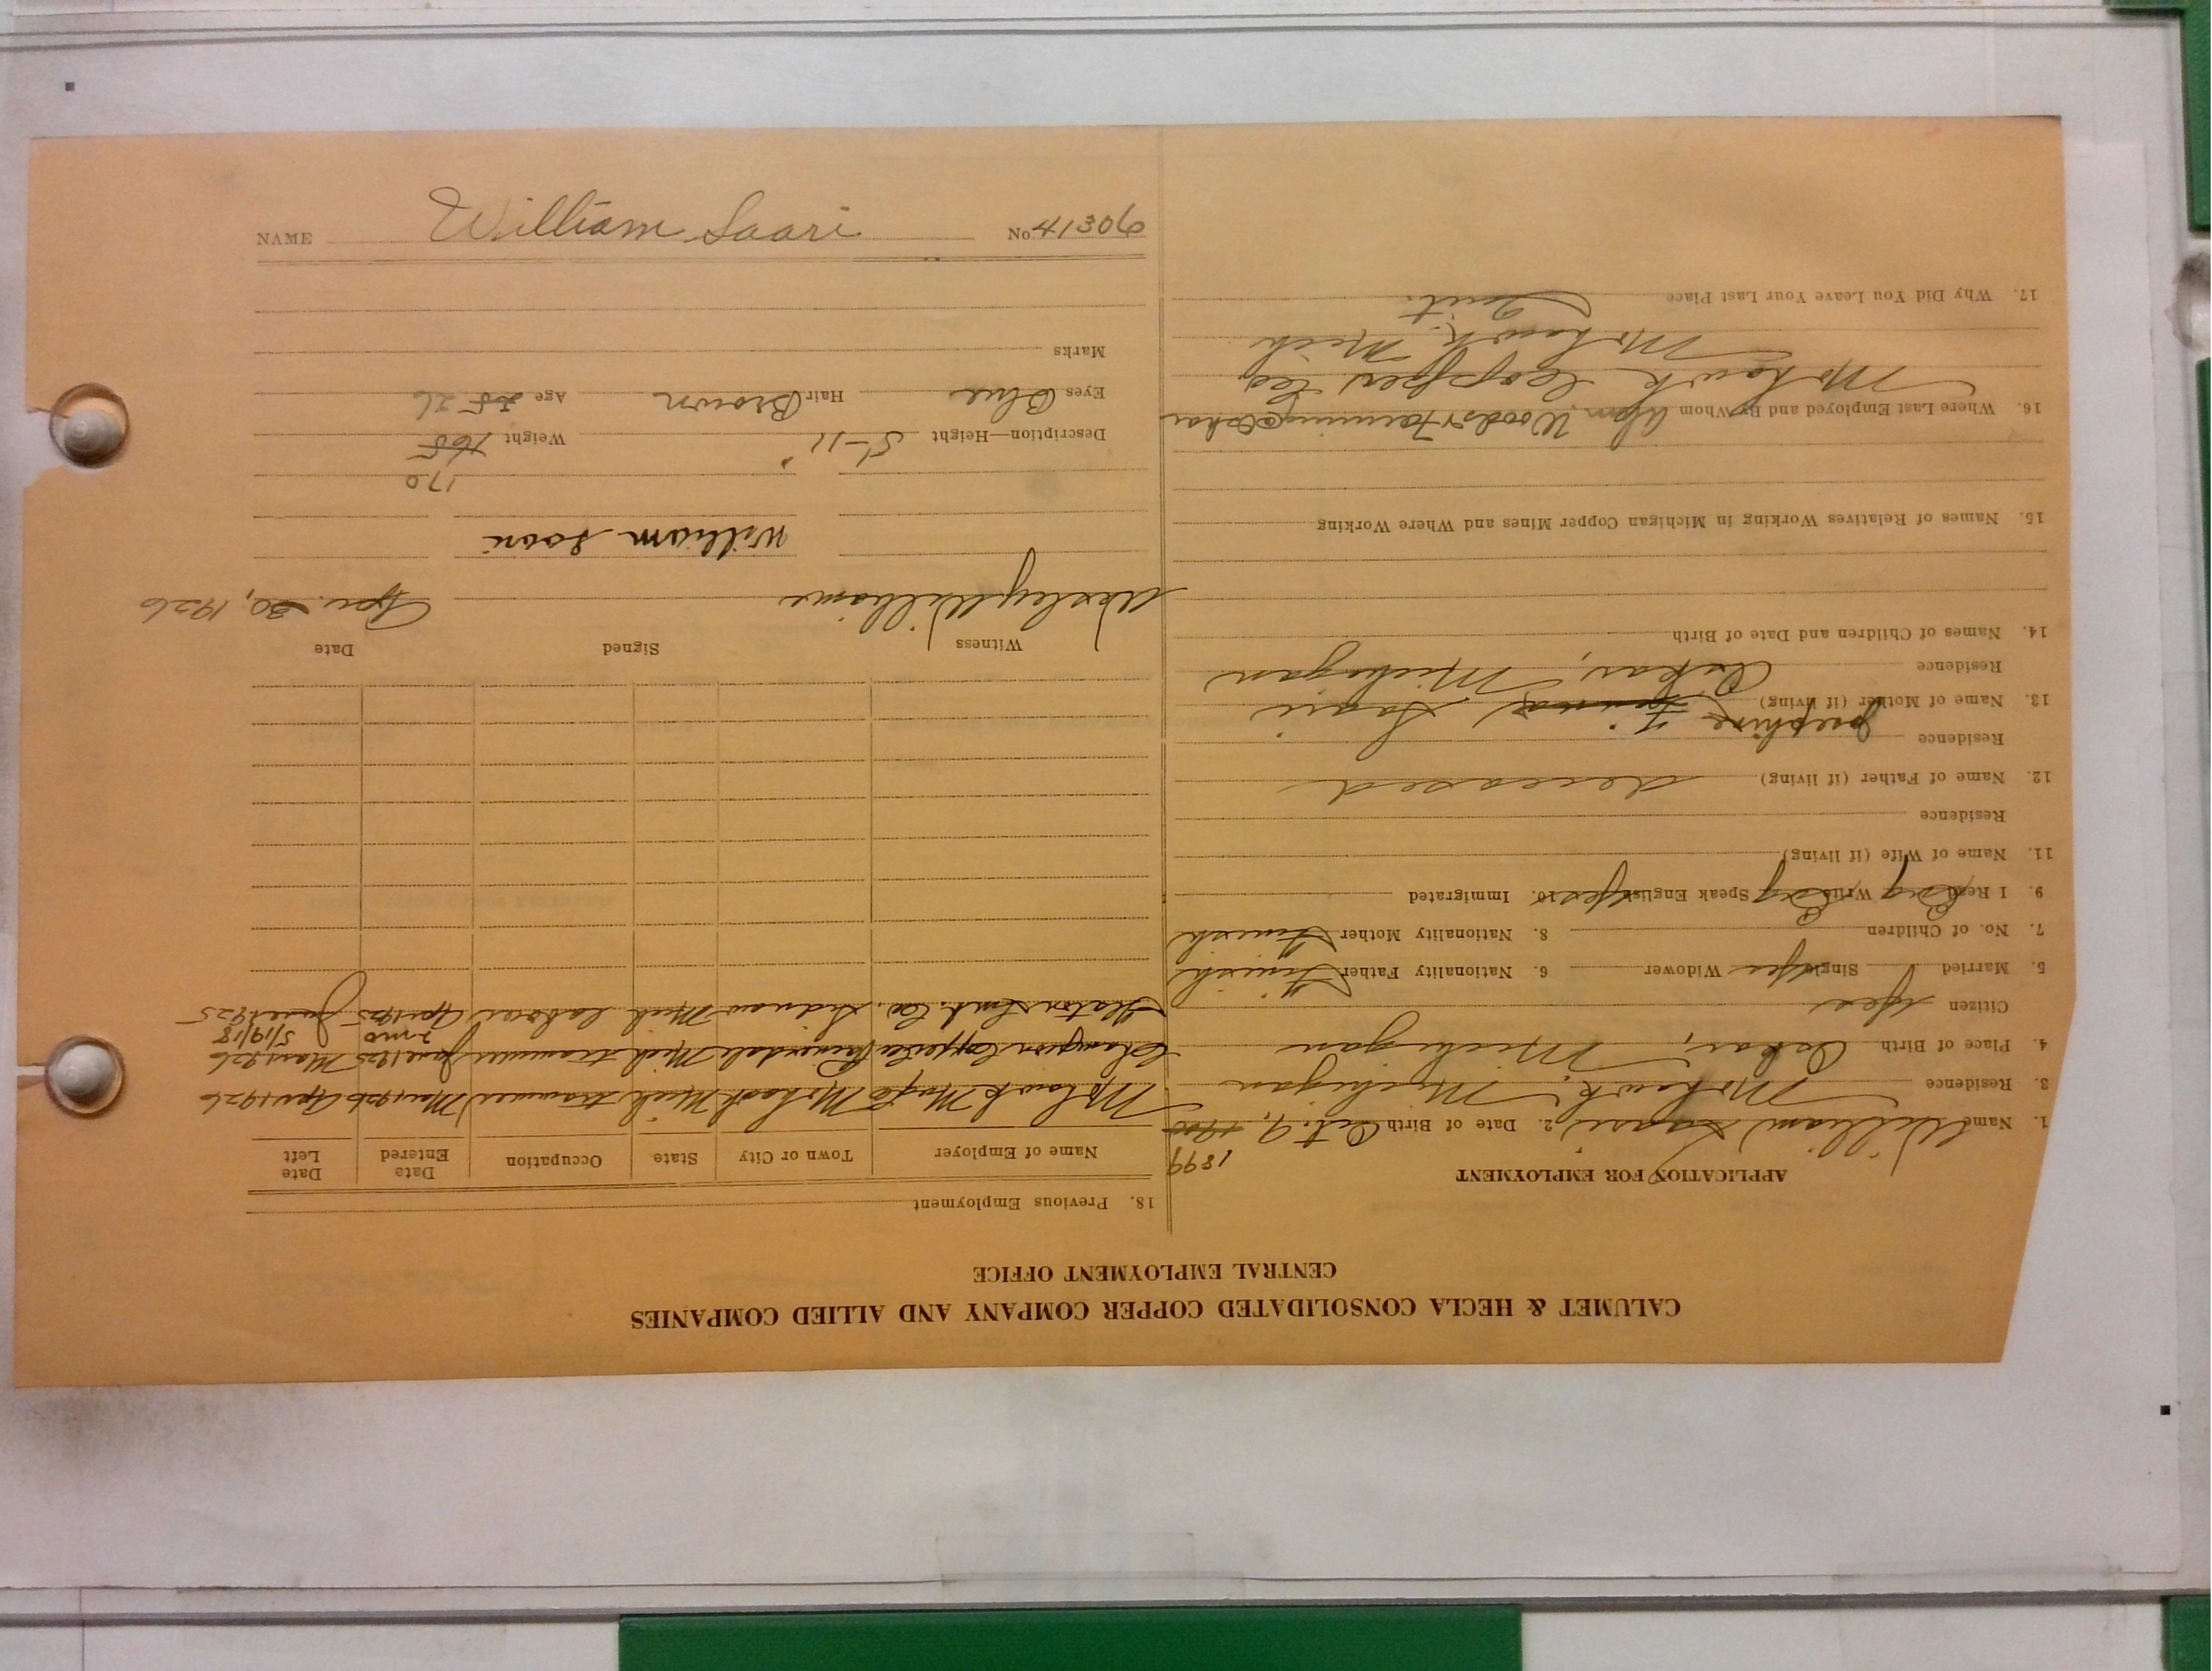 CALUMET & HECLA CONSOLIDATED COPPER COMPANY AND ALLIED COMPANIES
CENTRAL EMPLOYMENT OFFICE
APPLICATION FOR EMPLOYMENT
1899
1. Name William Saari 2. Date of Birth Oct. 9, 1900
3. Residence Mohawk, Michigan
4. Place of Birth Oskar, Michigan
Citizen yes
5. Married Single yes Widower 6. Nationality Father Finnish
7. No. of Children 8. Nationality Mother Finnish
9. I Read Eng Write Eng Speak English yes 10. Immigrated
11. Name of Wife (if living)
Residence
12. Name of Father (if living) deceased
Residence
Josephine
13. Name of Mother (if living) Saari
Residence Oskar, Michigan
14. Names of Children and Date of Birth
15. Names of Relatives Working in Michigan Copper Mines and Where Working
16. Where Last Employed and By Whom Woods & Farming Oskar
Mohawk Copper Co
Mohawk Mich
17. Why Did You Leave Your Last Place Quit.
18. Previous Employment
Name of Employer Town or City State Occupation Date Entered Date Left
Mohawk Mng Co Mohawk Mich trammer Mar 1926 Apr 1926
Champion Copper Co Painesdale Mich trammer June 1925 Mar 1926
2-mo 5/19/18
Lmt. Co. Sidnaw Mich laborer Apr 1925 June 1925
Witness Signed Date
Wesley Williams Apr. 30, 1926
William Saari
170
Description—Height 5-11" Weight 165
Eyes Blue Hair Brown Age 25 26
Marks
NAME William Saari No 41306